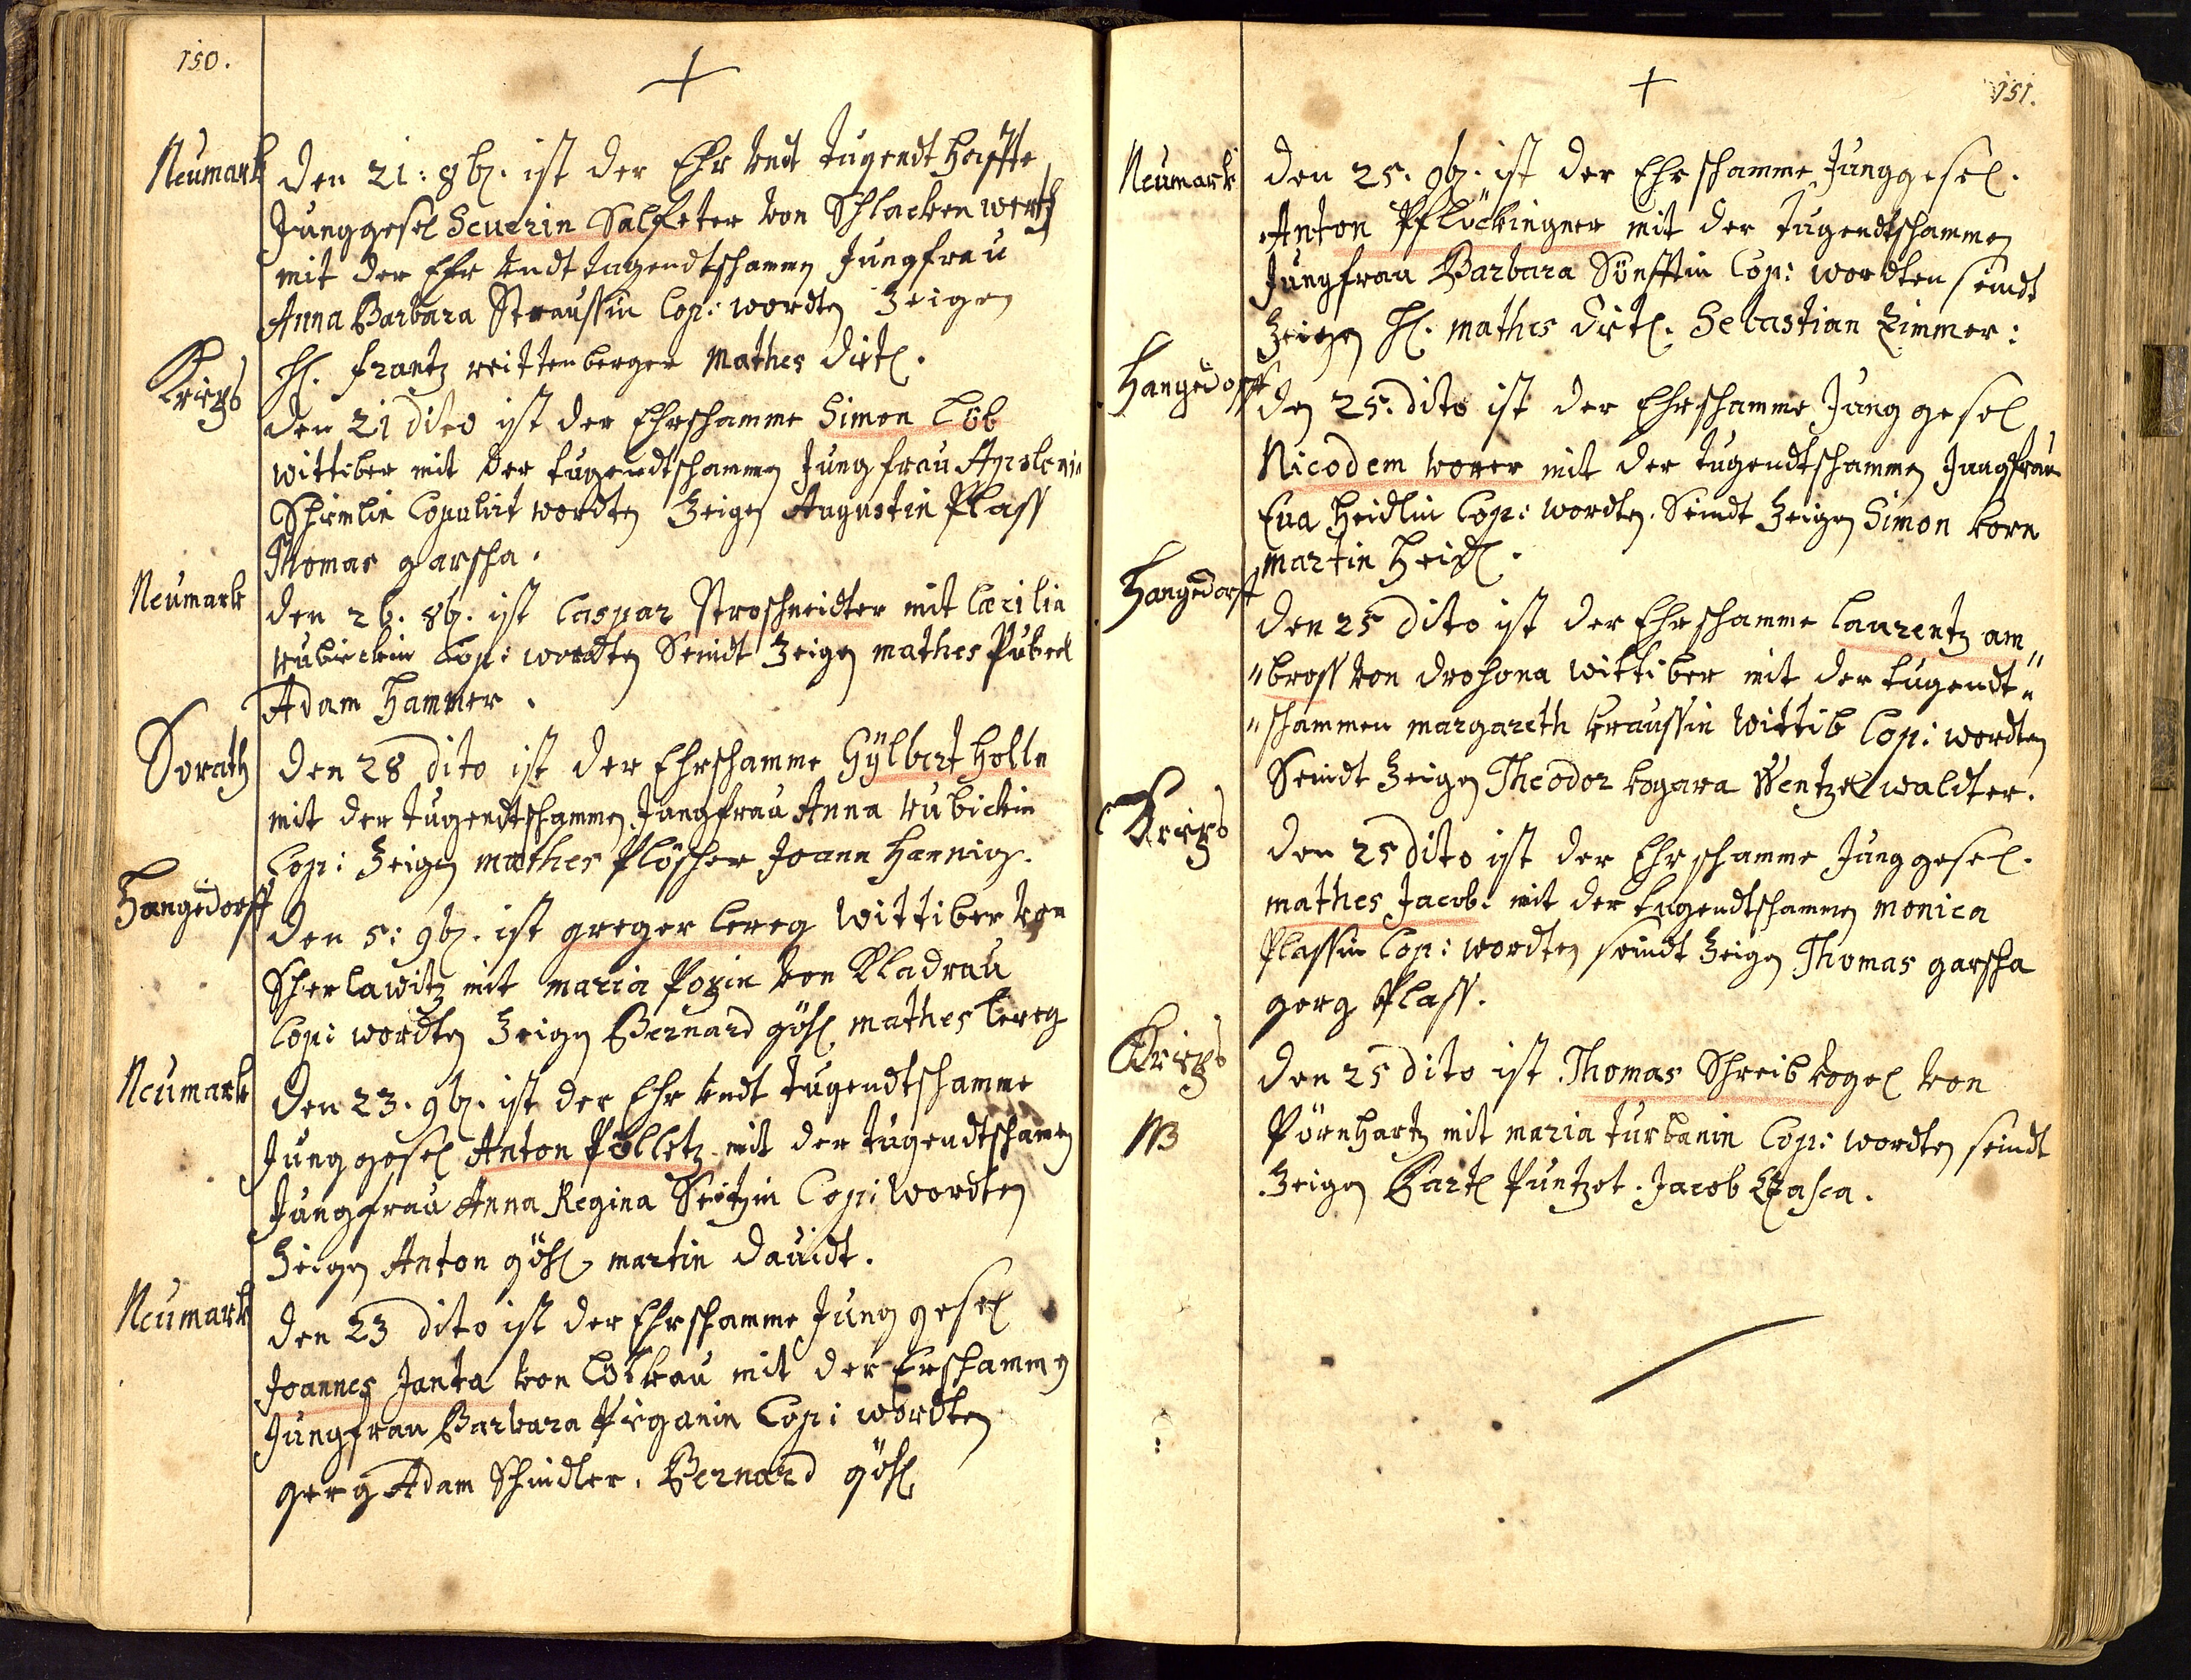 150.
Neumark
Den 21: 8b. ist der Ehr vndt tugendt haffte
Junggesel Seuerin Salfeter von Schlackenwerth
mit der Ehr vndt tugendtschamen Jungfrau
Anna Barbara Straussin Cop: wordten Zeigen
H. frantz reittenberger Mathes dietl.
Kriegs
den 21 dito ist der Ehrschamme Simon Löb
wittiber mit der tugendtschammen Jungfrau Apolonia
Copulirt wordten Zeigen Augustin Plass
Thomas garscha.
Neumark
den 26. 8b. ist Caspar Stroschneidter mit Cæcilia
kubickin Cop: wordten Seindt Zeigen mathes Pubeck
Adam Hammer.
Sorath
den 28 dito ist der Ehrschamme Gÿlbert Holln
mit der tugendtschammen Jungfrau Anna kubickin
Cop: Zeigen mathes Plöscher Joann Hannig.
Hangedorff
den 5: 9b. ist greger lereg wittiber von
Scherlawitz mit maria Pozin von Kladrau
Cop: wordten Zeigen Bernard gösl mathes lereg
Neumark
den 23. 9b. ist der Ehr vndt tugendtschamme
Junggesel Anton Polletz mit der tugendtschamen
Jungfrau Anna Regina Seitzin Cop: wordten
Zeigen Anton gösl martin dauidt.
Neumark
den 23 dito ist der Ehrschamme Jung gesel
Joannes Janta von mit der Erschammen
Jungfrau Barbara Pirganin Cop: wordten
gerg Adam Schindler. Bernard gösl
151.
Neumark
den 25. 9b. ist der Ehrschamme Junggesel.
Anton Pflöckingner mit der tugendtschammen
Jungfrau Barbara Sönfftin Cop: wordten seindt
Zeigen H. mathes dietl. Sebastian Zimmer:
Hangedorff
den 25. dito ist der Ehrschamme Jung gesel
Nicodem worer mit der tugendtschammen Jungfrau
Eua Heidlin Cop: wordten. Seindt Zeigen Simon korn
martin Heidl.
Hangedorff
den 25 dito ist der Ehrschamme Laurentz am"
"bross von drohona wittiber mit der tugendt"
"schammen margareth kraussin wittib Cop: wordten
Seindt Zeigen Theodor kogara Wentzel waldter.
Kriegs
den 25 dito ist der Ehrschamme Junggesel.
mathes Jacob. mit der tugendtschammen monica
Plassin Cop: wordten seindt Zeigen Thomas garscha
gerg Plass.
Kriegs
den 25 dito ist Thomas Schreib kogel von
NB
Pörnhartz mit maria turbanin Cop: wordten seindt
Zeigen Bartl Puntzet. Jacob